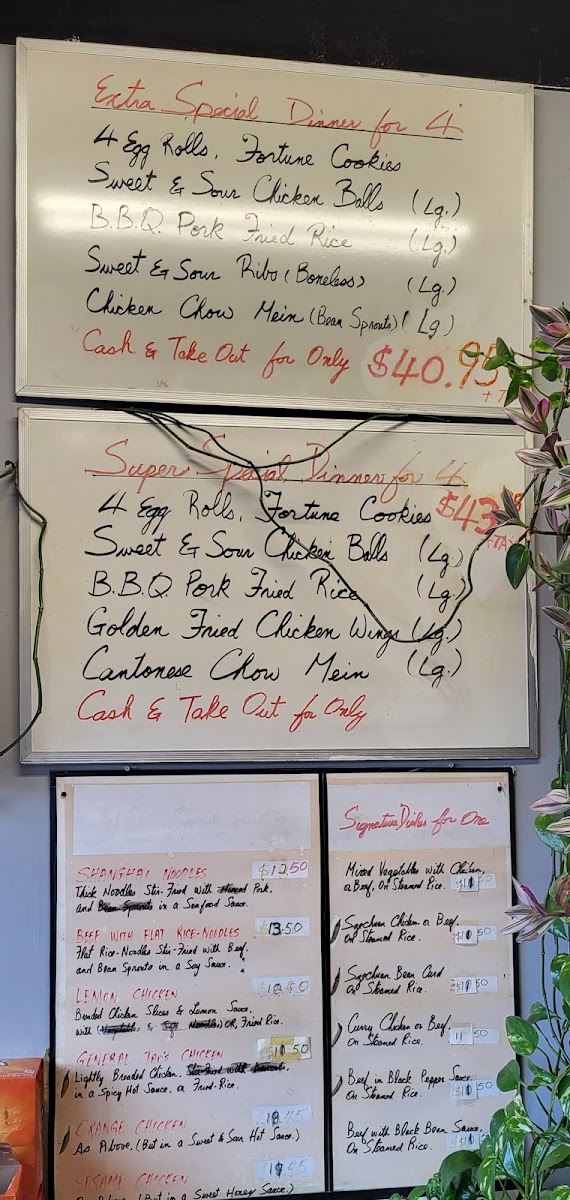 Extra Special Dinner for 4
4 Egg Rolls, Fortune Cookies
Sweet & Sour Chicken Balls (Lg.)
B.B.Q. Pork Fried Rice (Lg.)
Sweet & Sour Ribs (Boneless) (Lg.)
Chicken Chow Mein (Bean Sprouts) (Lg)
Cash & Take Out for Only $40.95
Super Special Dinner for 4
4 Egg Rolls, Fortune Cookies $43
+TAX
Sweet & Sour Chicken Balls (Lg.)
B.B.Q. Pork Fried Rice (Lg.)
Golden Fried Chicken Wings (Lg.)
Cantonese Chow Mein (Lg.)
Cash & Take Out for Only
SHANGHAI NOODLES
Thick Noodles Stir-Fried with Pork.
and in a Seafood Sauce.
BEEF WITH FLAT RICE-NOODLES 13.50
Flat Rice-Noodles Stir-Fried with Beef.
and Bean Sprouts in a Soy Sauce.
LEMON CHICKEN
Breaded Chicken Slices & Lemon Sauce,
with & OR, Fried Rice.
GENERAL TAO'S CHICKEN
Lightly Breaded Chicken.
in a Spicy Hot Sauce. or Fried-Rice.
ORANGE CHICKEN
As Above. (But in a Sweet & Sour Hot Sauce.)
SESAME CHICKEN
(But in a Sweet Honey Sauce.)
Signature Dishes for One
Mixed Vegetables with Chicken,
or Beef, On Steamed Rice.
Szechuan Chicken or Beef.
On Steamed Rice.
Szechuan Bean Curd
On Steamed Rice.
Curry Chicken or Beef
On Steamed Rice.
Beef in Black Pepper Sauce.
On Steamed Rice.
Beef with Black Bean Sauce,
On Steamed Rice.